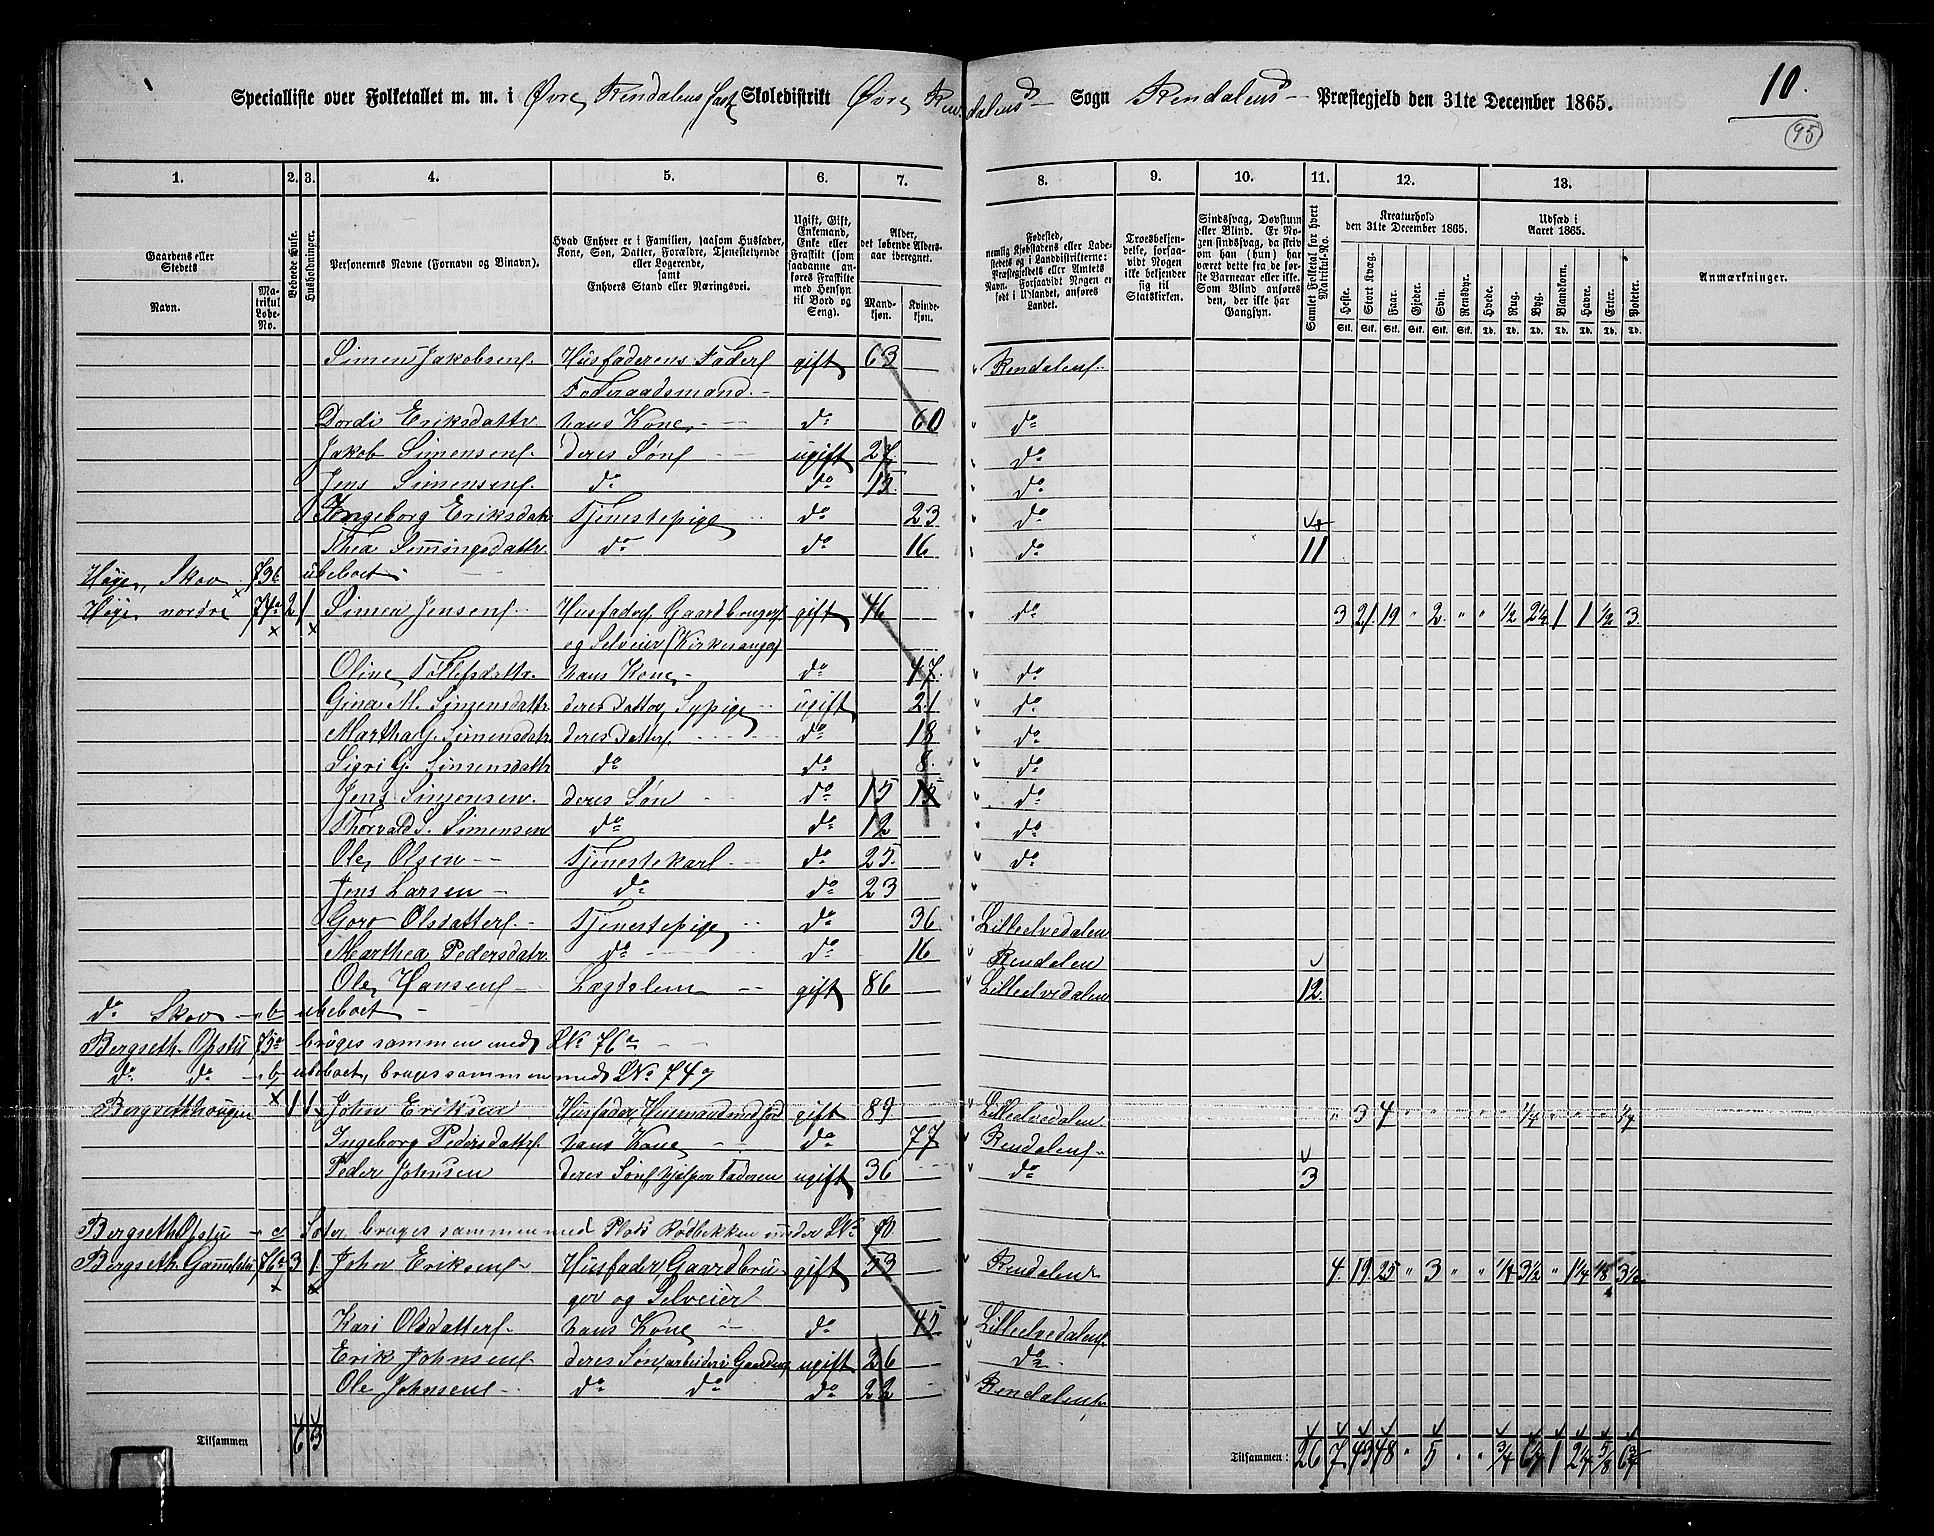 10.
95
Specialliste over Folketallet m. m. i Øvre Rendalens fast Skoledistrikt Øvre Rendalens Sogn Rendalens Præstegjeld den 31te December 1865.
1. 2. 3. 4. 5. 6. 7. 8. 9. 10. 11. 12. 13.
Gaardens eller Stedets
Navn.
Matrikul Løbe-No.
Beboede Huse.
Husholdninger.
Personernes Navne (Fornavn og Binavn).
Hvad Enhver er i Familien, saasom Husfader, Kone, Søn, Datter, Forældre, Tjenestetyende eller Logerende, samt Enhvers Stand eller Næringsvei.
Ugift, Gift, Enkemand, Enke eller Fraskilt (som saadanne anføres Fraskilte med Hensyn til Bord og Seng).
Alder, det løbende Aldersaar iberegnet.
Mandkjøn. Kvindekjøn.
Fødested, nemlig Kjøbstadens eller Ladestedets og i Landdistrikterne: Præstegjeldets eller Amtets Navn. Forsaavidt Nogen er født i Udlandet, anføres Landet.
Troesbekjendelse, forsaavidt Nogen ikke bekjender sig til Statskirken.
Sindssvag, Døvstum eller Blind. Er Nogen sindssvag, da skriv om han (hun) har været dette fra de første Barneaar eller ikke. Som Blind anføres den, der ikke har Gangsyn.
Samlet Folketal for hvert Matrikul-No.
Kreaturhold den 31te December 1865.
Heste. Stort Kvæg. Faar. Gjeder. Svin. Rensdyr.
Stk. Stk. Stk. Stk. Stk. Stk.
Udsæd i Aaret 1865.
Hvede. Rug. Byg. Blandkorn. Havre. Erter. Poteter.
Td. Td. Td. Td. Td. Td. Td.
Anmærkninger.
Simen Jakobsen Husfaderens Fader gift 63 Rendalen
Føderaadsmand
Dordi Eriksdattr hans Kone do 60 do
Jakob Simensen deres Søn ugift 27 do
Jens Simensen do do 13 do
Ingeborg Eriksdatr Tjenestepige do 23 do
Thea Simingsdattr. do do 16 do 11
Høye, Skov 73b ubeboet
Høye nordre 74a 2 1 Simen Jensen Husfader Gaardbruger gift 46 do 3 21 19 " 2 " " ½ 2¼ 1 1 ½ 3
og Selveier (Kirkesanger)
Oline Tollefsdattr. hans Kone do 47 do
Gina M. Simensdattr deres Datter, Sypige ugift 21 do
Martha G. Simensdatr deres Datter do 18 do
Sigri G. Simensdattr do do 8 do
Jens Simensen deres Søn do 15 15 do
Thorvald S. Simensen do do 12 do
Ole Olsen Tjenestekarl do 25 do
Jens Larsen do do 23
Goro Olsdatter Tjenestepige do 36 Lilleelvedalen
Marthea Pedersdatr do do 16 Rendalen
Ole Hansen Lægdslem gift 86 Lilleelvedalen 12
do Skov " b ubeboet
Bergseth Opstu 75a bruges sammen med LNo 76a
do do " b ubeboet, bruges sammen med LNo 74a
Bergsethhougen 1 1 John Eriksen Husfader, Husmand med Jord gift 89 Lilleelvedalen " 3 4 " " " " " ¼ " " " ¼
Ingeborg Pedersdatter hans Kone do 77 Rendalen
Peder Johnsen deres Søn hjelper Faderen ugift 36 do 3
Bergseth Opstu " c Sæter bruges sammen med Plads Rødbekken under LNo 70
Bergseth Gammelstu 76a 3 1 John Eriksen Husfader, Gaardbru- gift 53 Rendalen 4 19 25 " 3 " " ¼ 3½ " 1¼ ⅛ 3½
ger og Selveier
Kari Olsdatter hans Kone do 45 Lilleelvedalen
Erik Johnsen deres Søn, arbeider i Gaarden ugift 26 do
Ole Johnsen do do do 22 Rendalen
Tilsammen 6 3 Tilsammen: 26 7 43 48 " 5 " " ¾ 6¼ 1 2¼ ⅝ 6¾